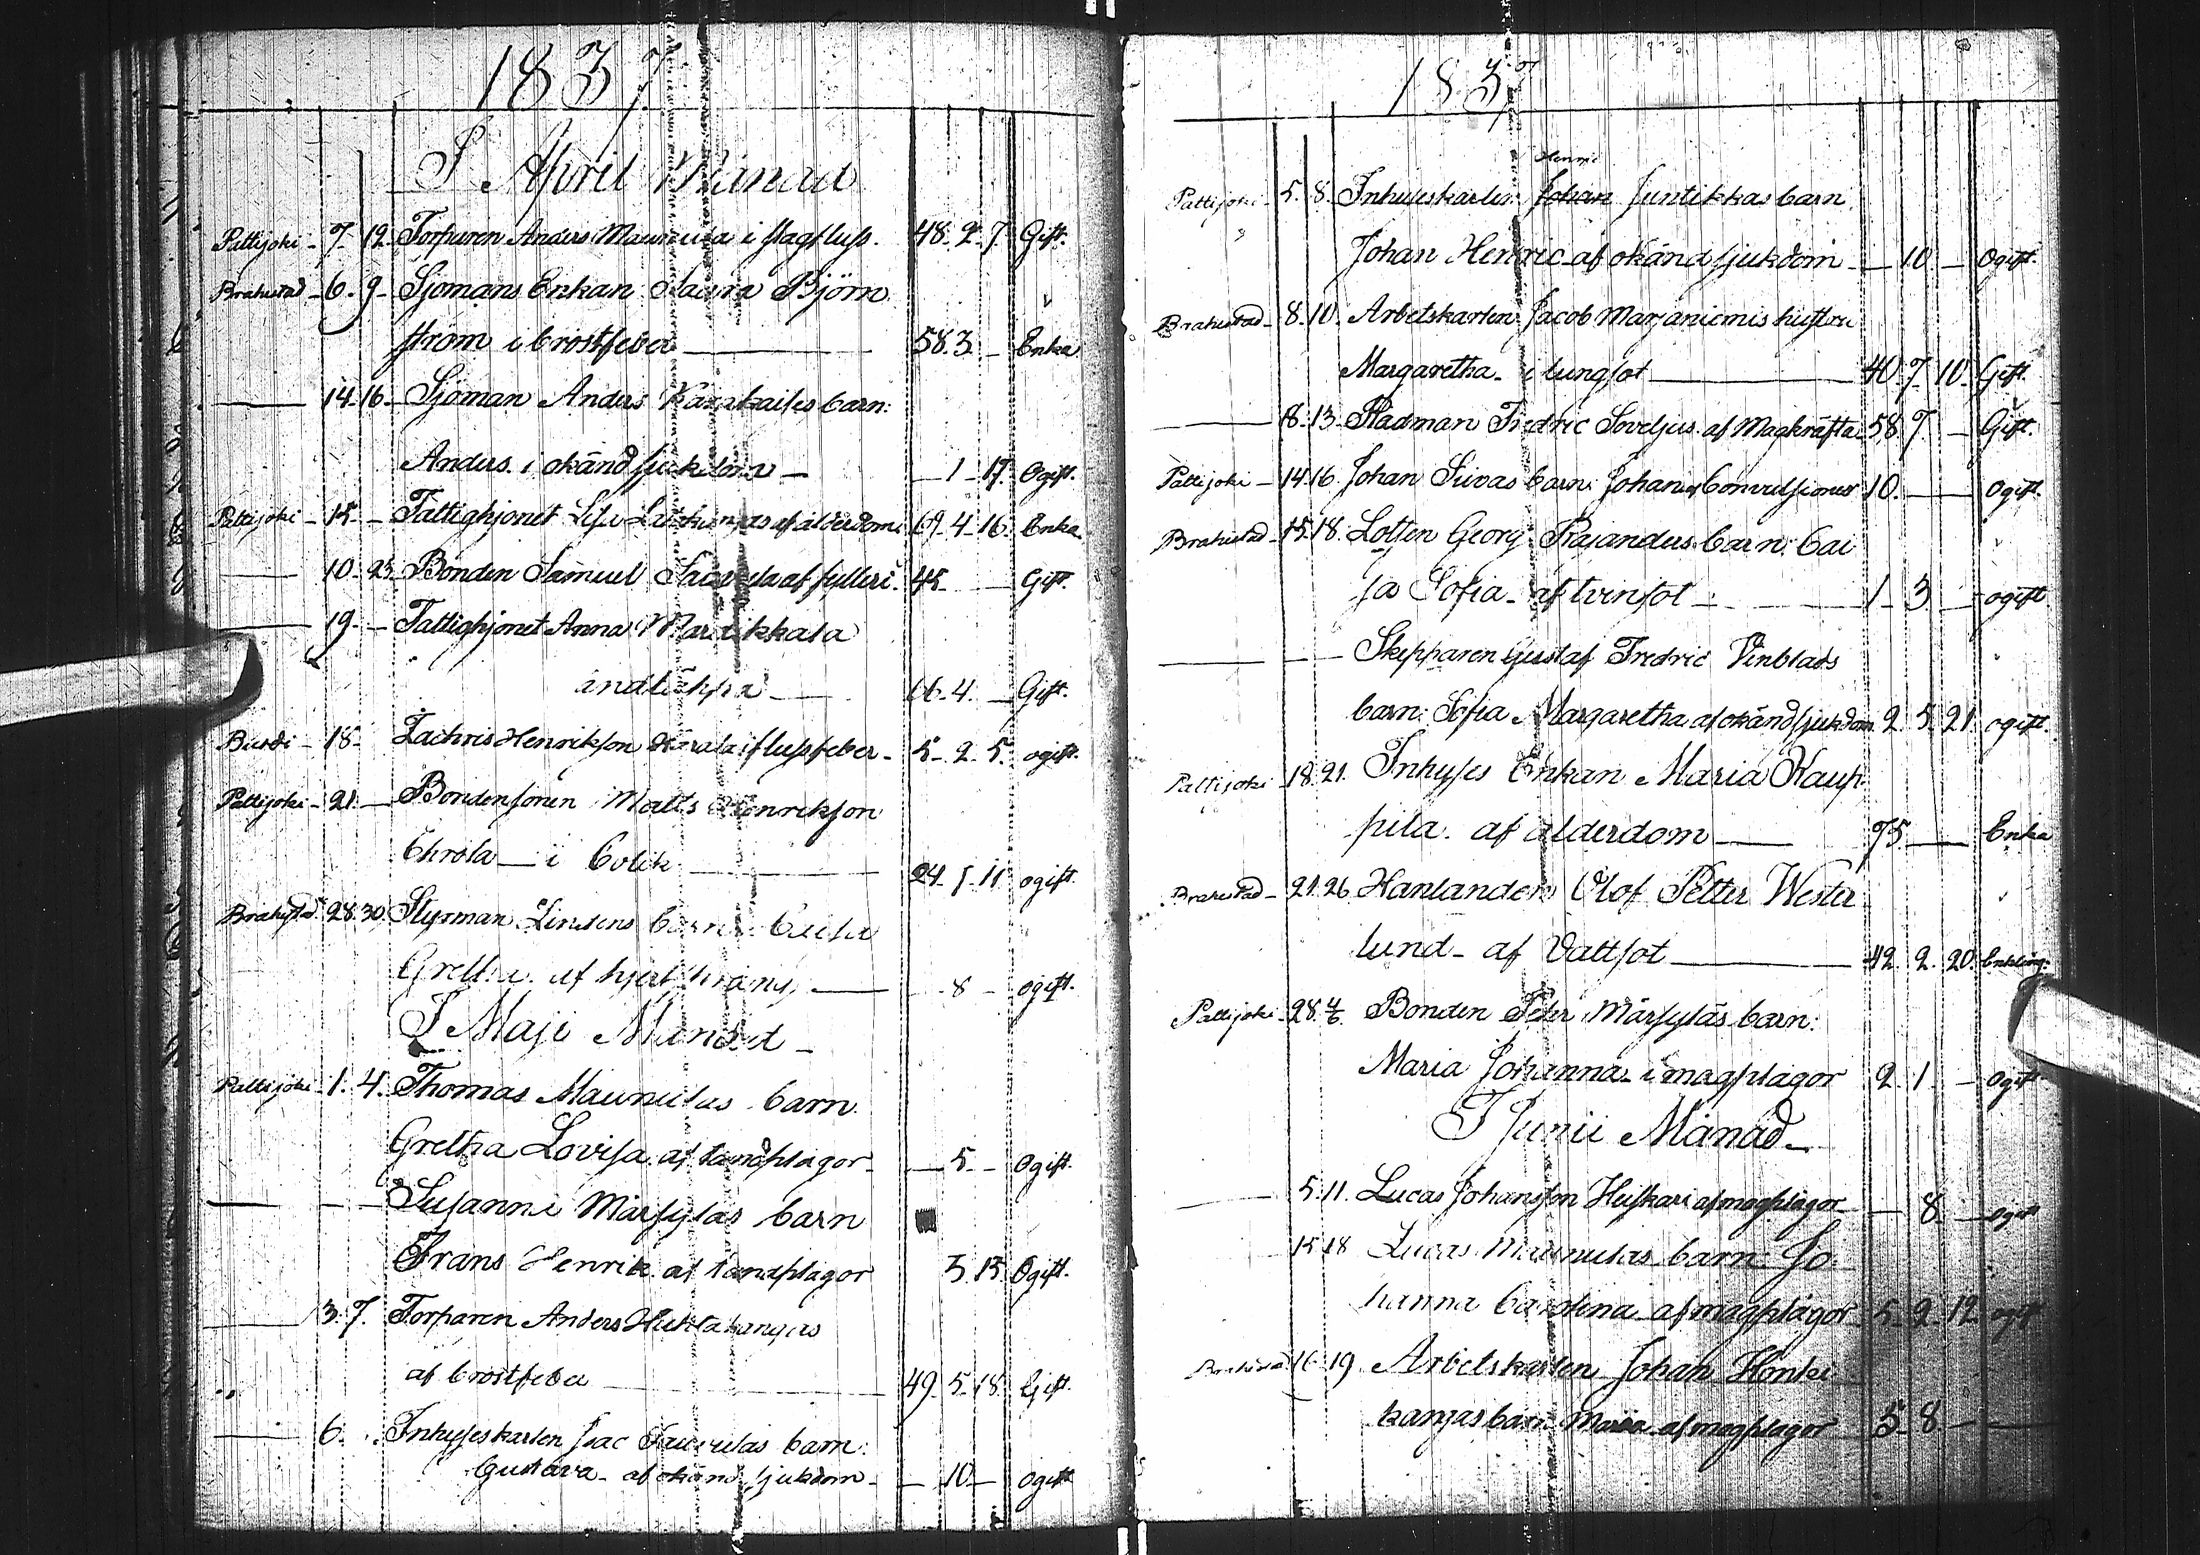 1837
I April Månad
Pattijoki - 7. 12. Torparen Anders Maunula i slagfluss. 48. 2. 7. Gift.
Brahestad - 6. 9. Sjömans Enkan Björn
ström i bröstfeber 58. 3. - Enka
14. 16. Sjöman Anders barn:
Anders. i okänd sjukdom - 1 - 17. Ogift.
Pattijoki - 15. - Fattighjonet Lisa af ålderdom 69. 4. 16. Enka
10. 23. Bonden Samuel af fylleri. 45. Gift.
19. - Fattighjonet Anna Martikkala
andtäppa 66. 4. - Gift.
18. Zachris Henrikson flussfeber - 5. 2. 5. ogift.
Pattijoki - 21. - Bondensonen Matts Henrikson
i Colik 24. 1. 11 ogift.
Brahestad 28. 30. Styrman Lindens barn: Cajsa
Gretha. af hjert - 8 - ogift.
I Maji Månad -
Pattijoki - 1. 4. Thomas Maunulas barn.
Gretha Lovisa. af tandplågor - 5. - Ogift.
Susanna Märsyläs barn
Frans Henrik af tandplågor 3. 13 Ogift.
3. 7. Torparen Anders Huhtakangas
af bröstfeber 49. 5. 18. Gift.
6. Inhyseskarlen barn:
Gustava - af okänd sjukdom - 10 - ogift
1837
Henric
Pattijoki - 5. 8. Inhyseskarlen Johan Juntikkas barn
Johan Henric - af okänd sjukdom - 10 - Ogift.
Brahestad - 8. 10. Arbetskarlen Jacob Marjaniemis hustru
Margaretha - i lungsot 40. 7. 10. Gift.
8. 13. Rådman Fredric Sovelius af Magkräfta 58. 7. - Gift.
Pattijoki - 14. 16. Johan Siivas barn: Johan af Convulsioner 10. Ogift.
Brahestad - 15. 18. Lotsen Georg Rajanders barn: Cai
sa Sofia - af tvinsot 1. 3. - ogift
Skepparen Gustaf Fredric Vinblads
barn: Sofia Margaretha af okänd sjukdom 2. 5. 21. ogift.
Pattijoki 18. 21. Inhyses Enkan Maria Kaup
pila. af ålderdom 75 Enka
Brahestad - 21. 26. Hanlanden Olof Petter Wester
lund - af Vattsot 42. 2. 20. Enkling.
Pattijoki - 28. 4/6. Bonden Peter Märsyläs barn:
Maria Johanna - i magplågor 2. 1. - Ogift
I Junii Månad -
5. 11. Lucas Johansson Heiskari af magplågor - 8. - ogift
15. 18 Lucas Maunulas barn: Jo
hanna Carolina af magplågor 5. 2. 12 ogift
Brahestad 16. 19. Arbetskarlen Johan Honka
kangas barn Maria af magplågor 5. 8. -